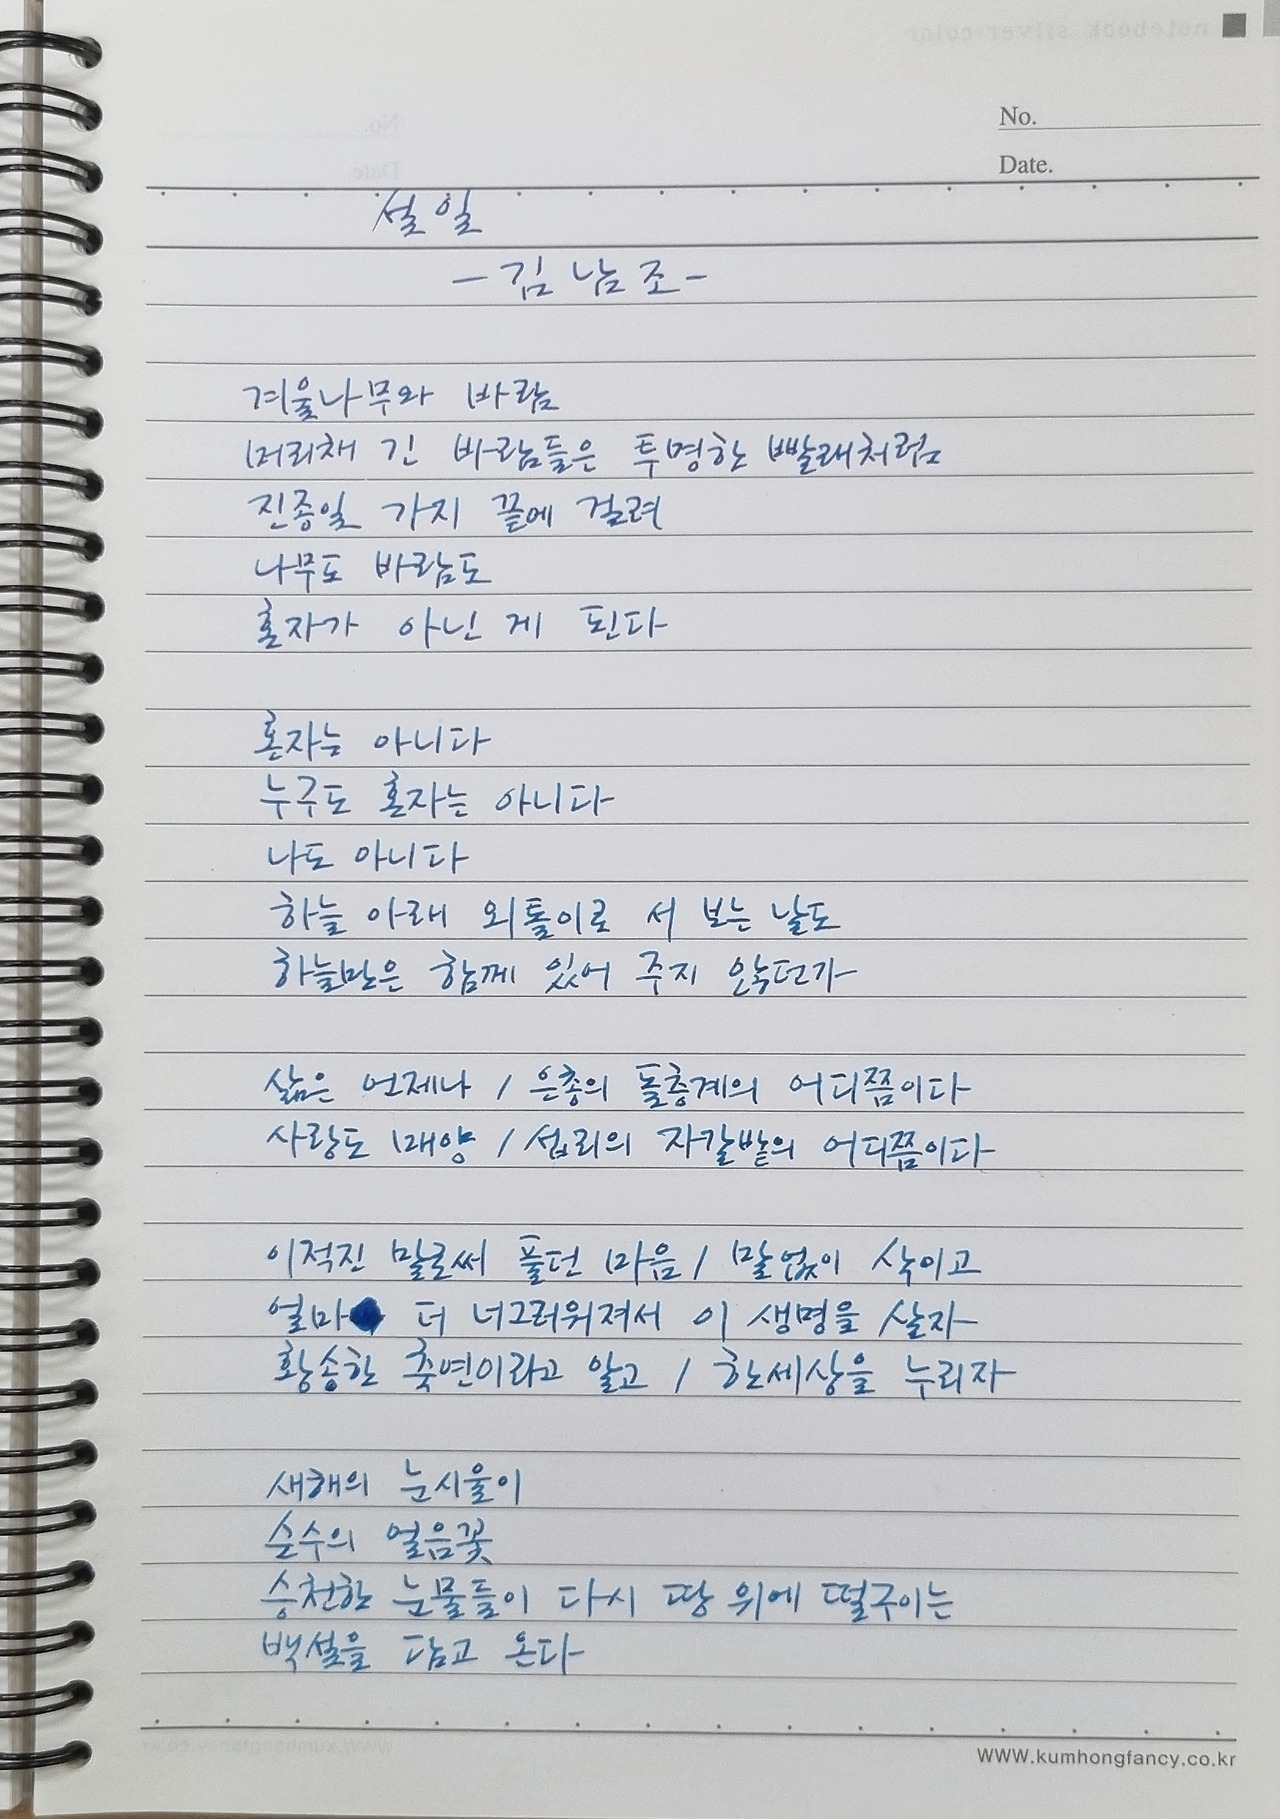 notebook silver-color
No.
Date.
설일
- 김남조 -
겨울나무와 바람
머리채 긴 바람들은 투명한 빨래처럼
진종일 가지 끝에 걸려
나무도 바람도
혼자가 아닌 게 된다
혼자는 아니다
누구도 혼자는 아니다
나도 아니다
하늘 아래 외톨이로 서 보는 날도
하늘만은 함께 있어 주지 않던가
삶은 언제나 / 은총의 돌층계의 어디쯤이다
사랑도 매양 / 섭리의 자갈밭의 어디쯤이다
이적진 말로써 풀던 마음 / 말없이 삭이고
얼마 더 너그러워져서 이 생명을 살자
황송한 축연이라고 알고 / 한세상을 누리자
새해의 눈시울이
순수의 얼음꽃
승천한 눈물들이 다시 땅 위에 떨구이는
백설을 담고 온다
www.kumhongfancy.co.kr